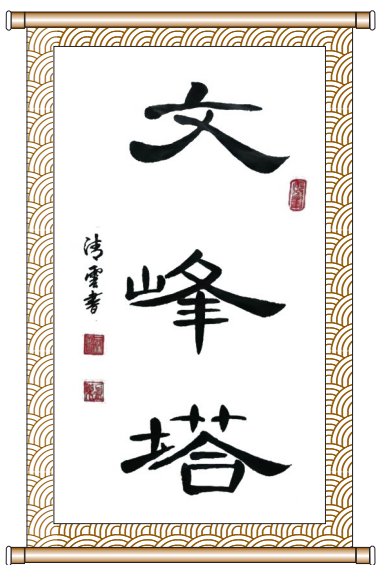 文峰塔
清雲書